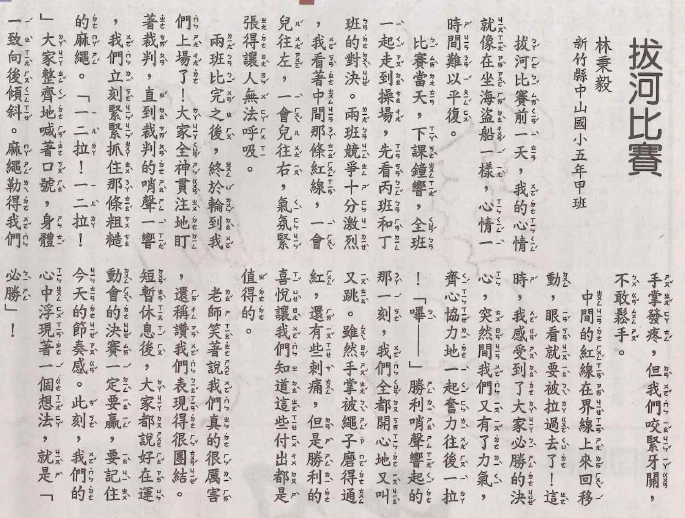 拔河比賽
林秉毅
新竹縣中山國小五年甲班
拔河比賽前一天，我的心情
就像在坐海盜船一樣，心情一
時間難以平復。
比賽當天，下課鐘響，全班
一起走到操場，先看丙班和丁
班的對決。兩班競爭十分激烈
，我看著中間那條紅線，一會
兒往左，一會兒往右，氣氛緊
張得讓人無法呼吸。
兩班比完之後，終於輪到我
們上場了！大家全神貫注地盯
著裁判，直到裁判的哨聲一響
，我們立刻緊緊抓住那條粗糙
的麻繩。「一二拉！一二拉！
」大家整齊地喊著口號，身體
一致向後傾斜。麻繩勒得我們
手掌發疼，但我們咬緊牙關，
不敢鬆手。
中間的紅線在界線上來回移
動，眼看就要被拉過去了！這
時，我感受到了大家必勝的決
心，突然間我們又有了力氣，
齊心協力地一起奮力往後一拉
！「嗶——」勝利哨聲響起的
那一刻，我們全都開心地又叫
又跳。雖然手掌被繩子磨得通
紅，還有些刺痛，但是勝利的
喜悅讓我們知道這些付出都是
值得的。
老師笑著說我們真的很厲害
，還稱讚我們表現得很團結。
短暫休息後，大家都說好在運
動會的決賽一定要贏，要記住
今天的節奏感。此刻，我們的
心中浮現著一個想法，就是「
必勝」！